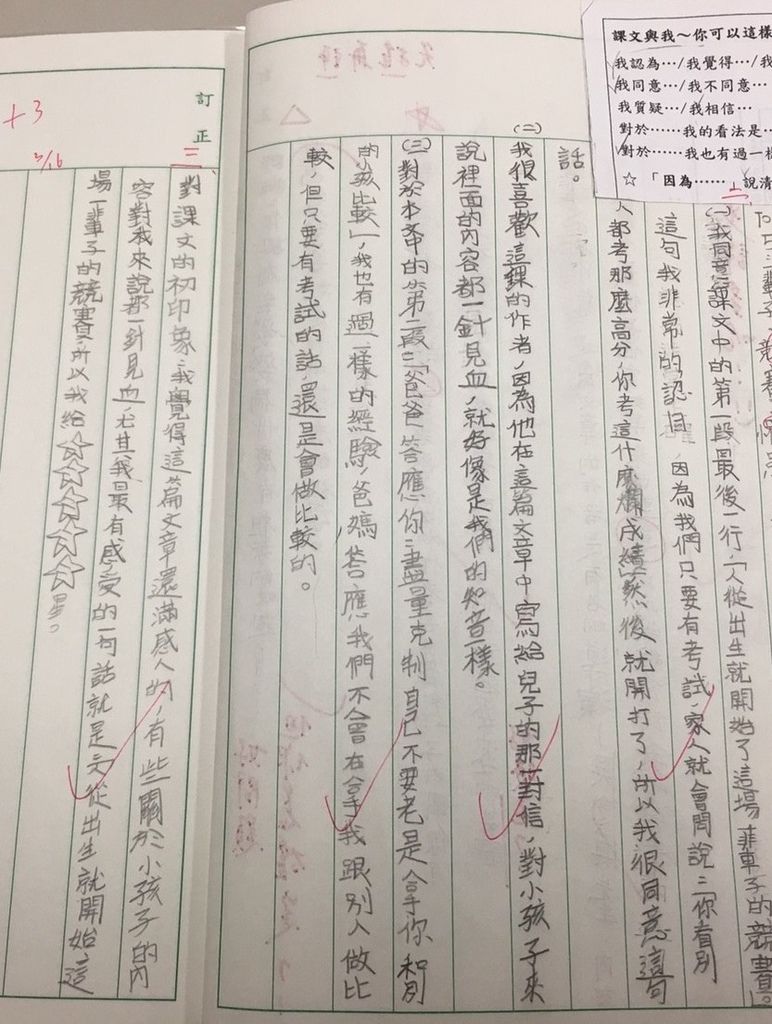 課文與我～你可以這樣
我認為…/我覺得…/我
我同意…/我不同意…
我質疑…/我相信…
對於……我的看法是…
對於……我也有過一樣
☆ 「因為……」說清
二
(一)我同意課文中的第一段最後一行,「人從出生就開始了這場一輩子的競賽」。
這句我非常的認同,因為我們只要有考試,家人就會開說:「你看別
人都考那麼高分,你考這什麼爛成績」然後就開打了,所以我很同意這句
話。
(二)
我很喜歡這課的作者,因為他在這篇文章中寫給兒子的那封信,對小孩子來
說裡面的內容都一針見血,就好像是我們的知音一樣。
(三)對於本文中的第二段:「爸爸答應你:盡量克制自己不要老是拿你和別
的小孩比較」,我也有過一樣的經驗,爸媽答應我們不會在拿我跟別人做比
較,但只要有考試的話,還是會做比較的。
訂正
+3
3/16
三、
對課文的初印象:我覺得這篇文章還滿感人的,有些關於小孩子的內
容對我來說都一針見血,尤其我最有感受的一句話就是:人從出生就開始這
場一輩子的競賽,所以我給☆☆☆☆☆星。